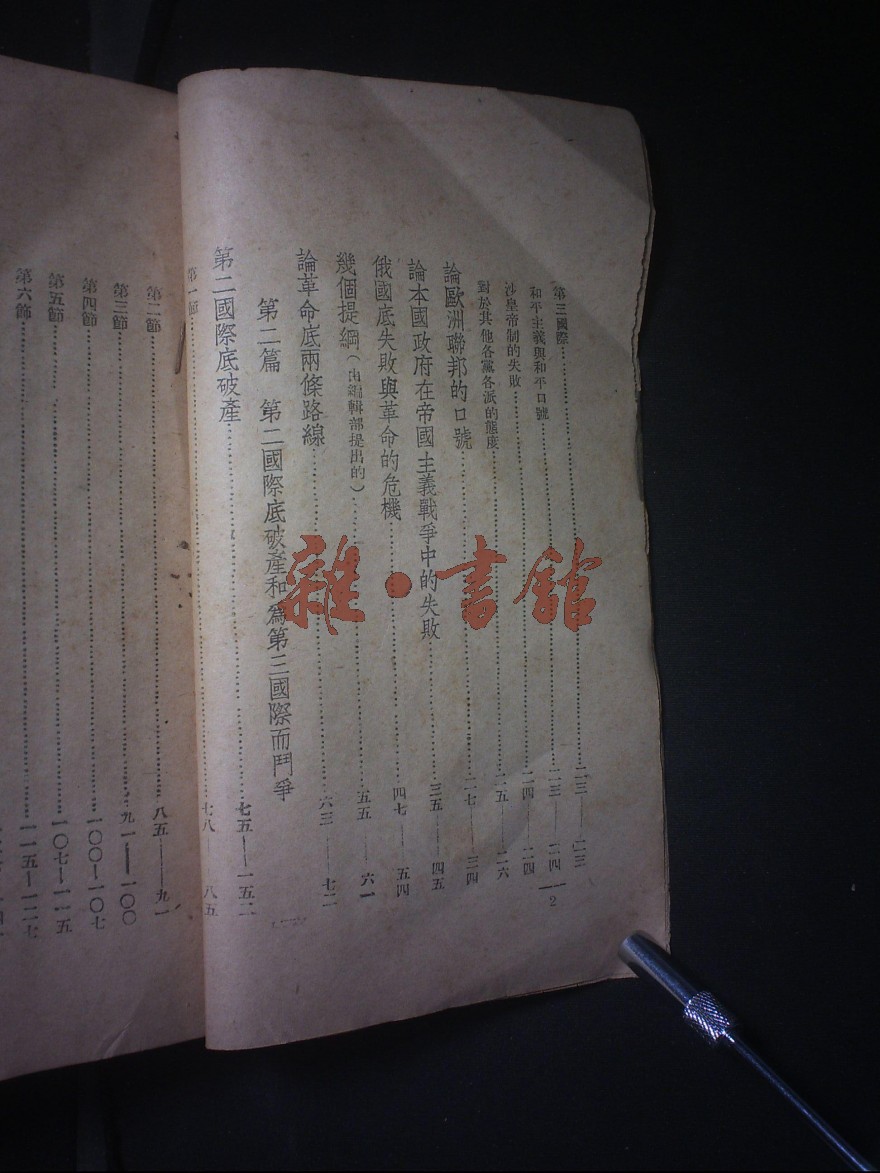 第三國際……二三——二三
和平主義與和平口號……二三——二四
沙皇帝制的失敗……二四——二四
對於其他各黨各派的態度……二五——二六
論歐洲聯邦的口號……二七——三四
論本國政府在帝國主義戰爭中的失敗……三五——四五
俄國底失敗與革命的危機……四七——五四
幾個提綱(由編輯部提出的)……五五——六一
論革命底兩條路線……六三——七二
第二篇 第二國際底破產和爲第三國際而鬥爭
第二國際底破產……七五—一五二
第一節……七八——八五
第二節……八五——九一
第三節……九一——一〇〇
第四節……一〇〇—一〇七
第五節……一〇七—一一五
第六節……一一五—一二七
—2
雜·書館